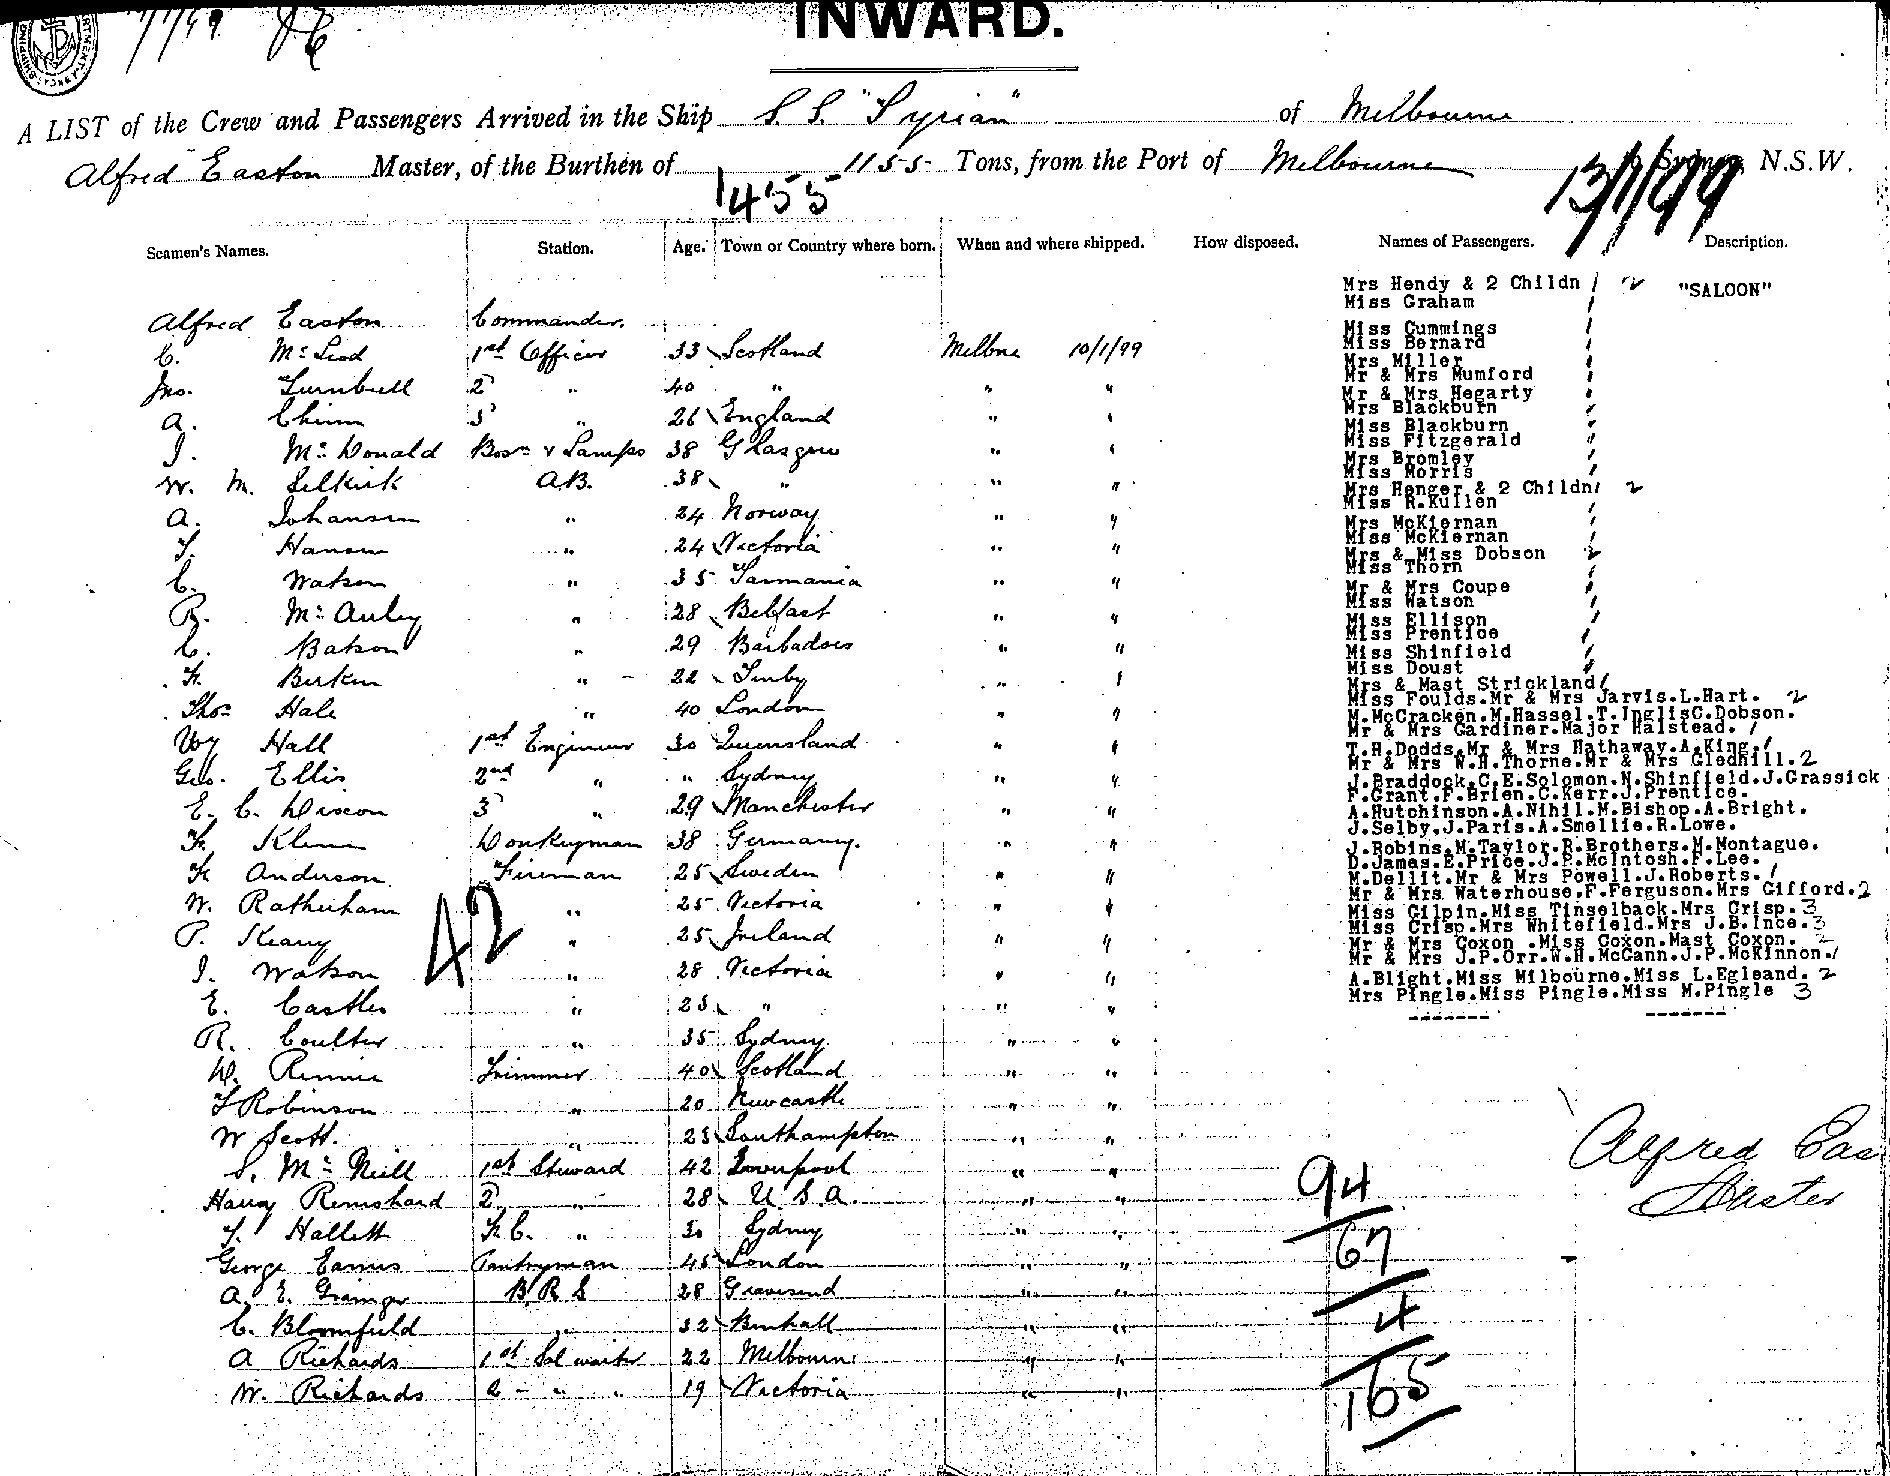 7/1/99
INWARD.
A LIST of the Crew and Passengers Arrived in the Ship S.S. "Syrian" of Melbourne
Alfred Easton Master, of the Burthen of 1155 Tons, from the Port of Melbourne to Sydney, N.S.W.
1455 13/1/99
Seamen's Names. Station. Age. Town or Country where born. When and where shipped. How disposed. Names of Passengers. Description.
Alfred Easton Commander.
C. McLeod 1st Officer 33 Scotland Melbne 10/1/99
Jno. Turnbull 2 " 40 " " "
A. Chinn 3 " 26 England " "
J. McDonald Bosn & Lamps 38 Glasgow " "
W. M. Selkirk A.B. 38 " " "
A. Johansen " 24 Norway " "
T. Hansen " 24 Victoria " "
C. Watson " 35 Tasmania " "
R. McAuley " 28 Belfast " "
C. Batson " 29 Barbadoes " "
Fk. Birken " 22 Tenby " "
Thos Hale " 40 London " "
Wm Hall 1st Engineer 30 Queensland " "
Geo. Ellis 2nd " " Sydney " "
E. C. Discon 3 " 29 Manchester " "
Fk. Klein Donkeyman 38 Germany. " "
Fk Anderson Fireman 25 Sweden " "
W. Ratherham " 25 Victoria " "
P. Keany " 25 Ireland " "
J. Watson " 28 Victoria " "
42
E. Castles " 23 " " "
R. Coulter " 35 Sydney " "
D. Rennie Trimmer 40 Scotland " "
T Robinson " 20 Newcastle " "
W Scott. " 23 Southampton " "
S. McNeill 1st Steward 42 Liverpool " "
Harry Remshard 2 " 28 U.S.A. " "
T. Hallett F.C. " 30 Sydney " "
George Eames Pantryman 45 London " "
A. E. Grainger B.R.S 28 Gravesend " "
C. Bloomfield " 32 Benhall " "
A Richards 1st Sal waiter 22 Melbourne " "
W. Richards 2 - " " 19 Victoria " "
Mrs Hendy & 2 Childn 2 "SALOON"
Miss Graham
Miss Cummings
Miss Bernard
Mrs Miller
Mr & Mrs Mumford
Mr & Mrs Hegarty
Mrs Blackburn
Miss Blackburn
Miss Fitzgerald
Mrs Bromley
Miss Morris
Mrs Henger & 2 Childn 2
Miss R.Kullen
Mrs McKiernan
Miss McKiernan
Mrs & Miss Dobson
Miss Thorn
Mr & Mrs Coupe
Miss Watson
Miss Ellison
Miss Prentice
Miss Shinfield
Miss Doust
Mrs & Mast Strickland
Miss Foulds.Mr & Mrs Jarvis.L.Hart. 2
M.McCracken.M.Hassel.T.InglisC.Dobson.
Mr & Mrs Gardiner.Major Halstead. /
T.H.Dodds.Mr & Mrs Hathaway.A.King. /
Mr & Mrs W.H.Thorne.Mr & Mrs Gledhill. 2
J.Braddock.C.E.Solomon.N.Shinfield.J.Grassick
F.Grant.F.Brien.C.Kerr.J.Prentice.
A.Hutchinson.A.Nihil.M.Bishop.A.Bright.
J.Selby.J.Paris.A.Smellie.R.Lowe.
J.Robins.M.Taylor.R.Brothers.M.Montague.
D.James.E.Price.J.P.McIntosh.F.Lee.
M.Dellit.Mr & Mrs Powell.J.Roberts. /
Mr & Mrs Waterhouse.F.Ferguson.Mrs Gifford. 2
Miss Gilpin.Miss Tinselback.Mrs Crisp. 3
Miss Crisp.Mrs Whitefield.Mrs J.B.Ince. 3
Mr & Mrs Coxon .Miss Coxon.Mast Coxon. 2
Mr & Mrs J.P.Orr.W.H.McCann.J.P.McKinnon. /
A.Blight.Miss Milbourne.Miss L.Egleand. 2
Mrs Pingle.Miss Pingle.Miss M.Pingle 3
Alfred Eas
Master
94
67
4
165